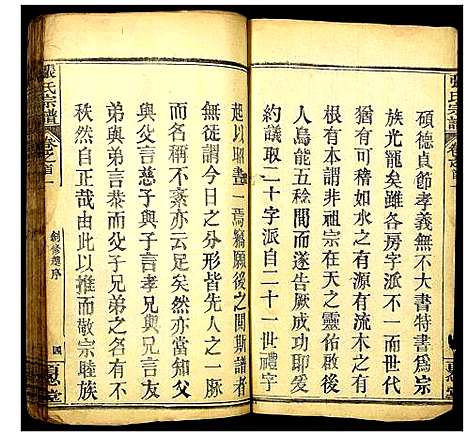 張氏宗譜
卷之首
碩德貞節孝義無不大書特書爲宗
族光寵矣雖各房字派不一而世代
猶有可稽如水之有源有流木之有
根有本謂非祖宗在天之靈佑啟後
人烏能五稔間而遂告厥成功也哉
約議取二十字派自二十一世禮字
起以昭畫一焉竊願後之閱斯譜者
無徒謂今日之分形皆先人之一脈
而名稱不紊亦云足矣然亦當知父
與父言慈子與子言孝兄與兄言友
弟與弟言恭而父子兄弟之有
秩然自正哉由此以推而敬宗睦族
張氏宗譜
卷之首
創修譜序
四